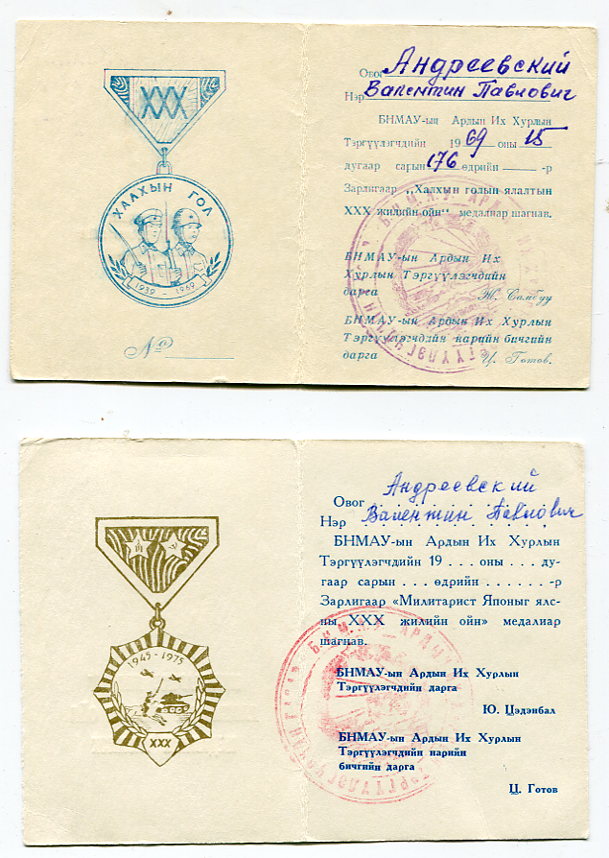 XXX
ХАЛХЫН ГОЛ
1939 - 1969
№
Овог Андреевский
Нэр Валентин Павлович
БНМАУ-ын Ардын Их Хурлын
Тэргүүлэгчдийн 1969 оны 15
дугаар сарын 176 өдрийн -р
Зарлигаар „Халхын голын ялалтын
XXX жилийн ойн" медалиар шагнав.
БНМАУ-ын Ардын Их
Хурлын Тэргүүлэгчдийн
дарга Ж. Самбуу
БНМАУ-ын Ардын Их Хурлын
Тэргүүлэгчдийн нарийн бичгийн
дарга Ц. Готов.
1945 - 1975
XXX
Овог Андреевский
Нэр Валентин Павлович
БНМАУ-ын Ардын Их Хурлын
Тэргүүлэгчдийн 19 . . . оны . . . ду-
гаар сарын . . . өдрийн . . . . . -р
Зарлигаар «Милитарист Японыг ялс-
ны XXX жилийн ойн» медалиар
шагнав.
БНМАУ-ын Ардын Их Хурлын
Тэргүүлэгчдийн дарга
Ю. Цэдэнбал
БНМАУ-ын Ардын Их Хурлын
Тэргүүлэгчдийн нарийн
бичгийн дарга
Ц. Готов